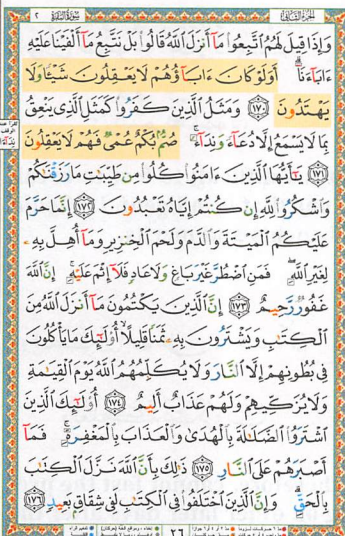 الجزء الثاني سورة البقرة ٢
وَإِذَا قِيلَ لَهُمُ ٱتَّبِعُوا۟ مَآ أَنزَلَ ٱللَّهُ قَالُوا۟ بَلْ نَتَّبِعُ مَآ أَلْفَيْنَا عَلَيْهِ
ءَابَآءَنَآ أَوَلَوْ كَانَ ءَابَآؤُهُمْ لَا يَعْقِلُونَ شَيْـًٔا وَلَا
يَهْتَدُونَ ١٧٠ وَمَثَلُ ٱلَّذِينَ كَفَرُوا۟ كَمَثَلِ ٱلَّذِى يَنْعِقُ
بِمَا لَا يَسْمَعُ إِلَّا دُعَآءً وَنِدَآءً صُمٌّۢ بُكْمٌ عُمْىٌ فَهُمْ لَا يَعْقِلُونَ
١٧١ يَـٰٓأَيُّهَا ٱلَّذِينَ ءَامَنُوا۟ كُلُوا۟ مِن طَيِّبَـٰتِ مَا رَزَقْنَـٰكُمْ
وَٱشْكُرُوا۟ لِلَّهِ إِن كُنتُمْ إِيَّاهُ تَعْبُدُونَ ١٧٢ إِنَّمَا حَرَّمَ
عَلَيْكُمُ ٱلْمَيْتَةَ وَٱلدَّمَ وَلَحْمَ ٱلْخِنزِيرِ وَمَآ أُهِلَّ بِهِۦ
لِغَيْرِ ٱللَّهِ فَمَنِ ٱضْطُرَّ غَيْرَ بَاغٍ وَلَا عَادٍ فَلَآ إِثْمَ عَلَيْهِ إِنَّ ٱللَّهَ
غَفُورٌ رَّحِيمٌ ١٧٣ إِنَّ ٱلَّذِينَ يَكْتُمُونَ مَآ أَنزَلَ ٱللَّهُ مِنَ
ٱلْكِتَـٰبِ وَيَشْتَرُونَ بِهِۦ ثَمَنًا قَلِيلًا أُو۟لَـٰٓئِكَ مَا يَأْكُلُونَ
فِى بُطُونِهِمْ إِلَّا ٱلنَّارَ وَلَا يُكَلِّمُهُمُ ٱللَّهُ يَوْمَ ٱلْقِيَـٰمَةِ
وَلَا يُزَكِّيهِمْ وَلَهُمْ عَذَابٌ أَلِيمٌ ١٧٤ أُو۟لَـٰٓئِكَ ٱلَّذِينَ
ٱشْتَرَوُا۟ ٱلضَّلَـٰلَةَ بِٱلْهُدَىٰ وَٱلْعَذَابَ بِٱلْمَغْفِرَةِ فَمَآ
أَصْبَرَهُمْ عَلَى ٱلنَّارِ ١٧٥ ذَٰلِكَ بِأَنَّ ٱللَّهَ نَزَّلَ ٱلْكِتَـٰبَ
بِٱلْحَقِّ وَإِنَّ ٱلَّذِينَ ٱخْتَلَفُوا۟ فِى ٱلْكِتَـٰبِ لَفِى شِقَاقٍۭ بَعِيدٍ ١٧٦
٢٦